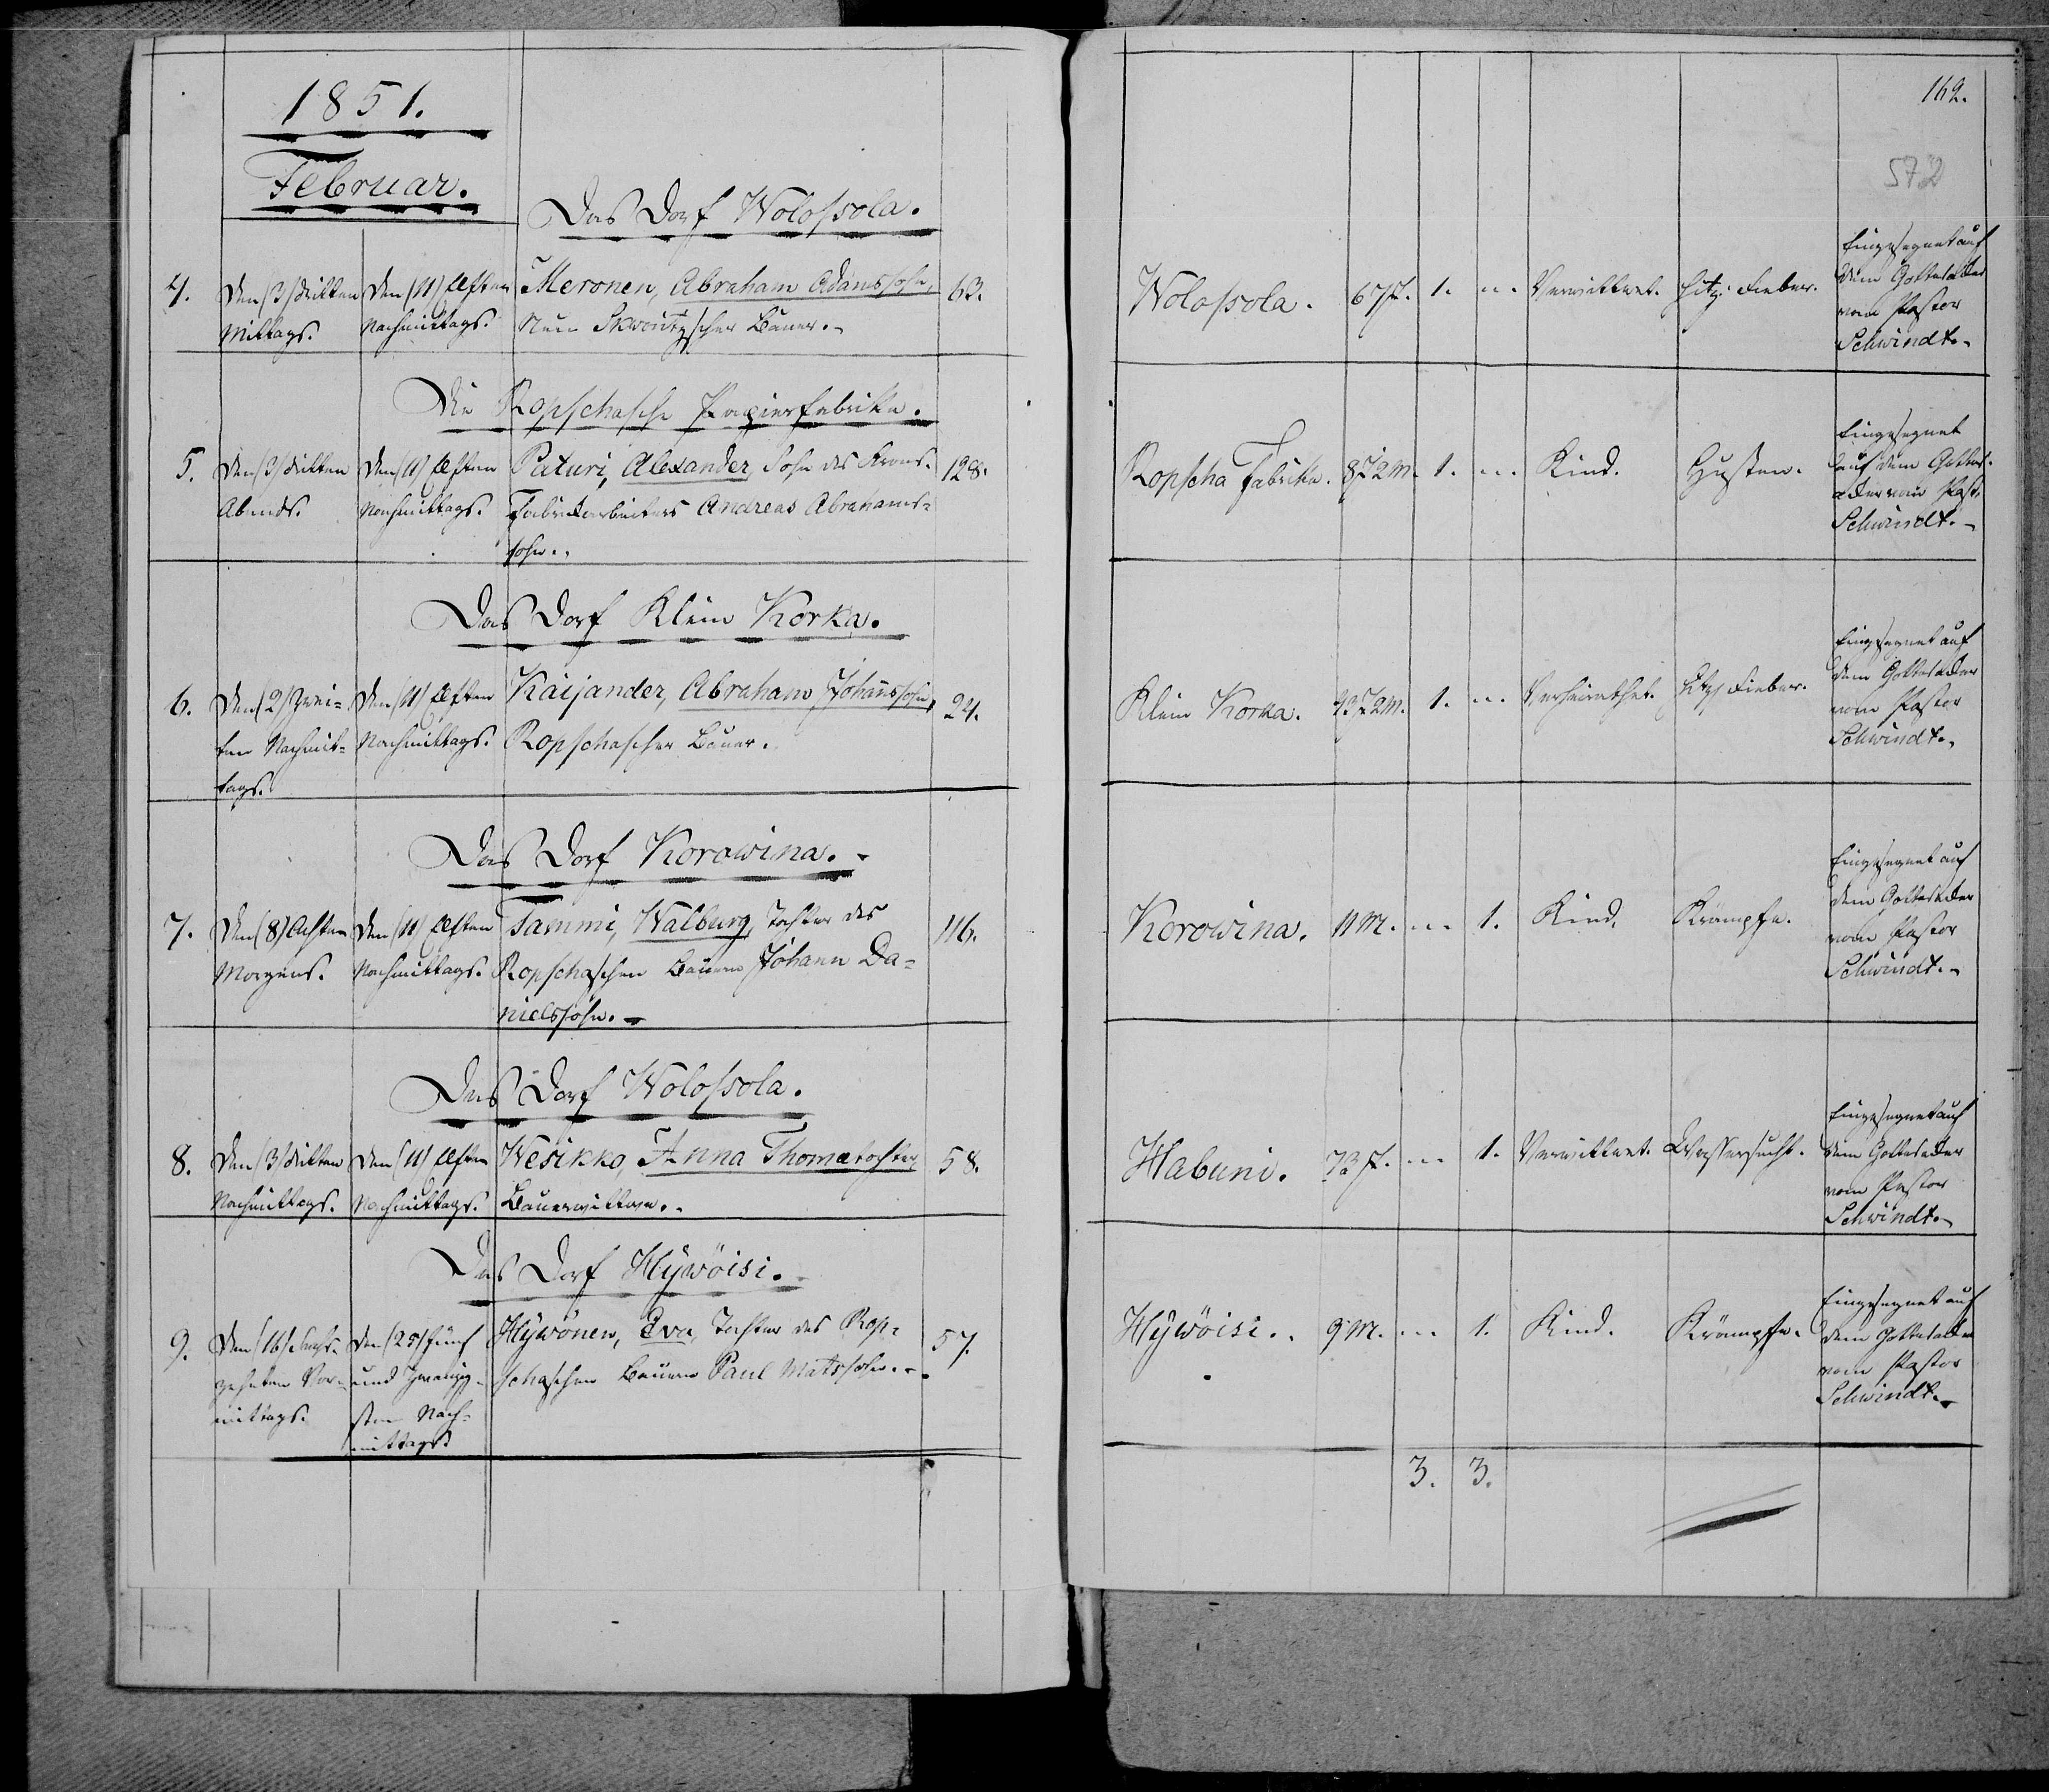 1851.
Februar.
Das Dorf Wolossola.
4.
Den (3) dritten
Mittags.
Den (11) Elften
Nachmittags.
Meronen, Abraham Adamssohn,
Skworitzscher Bauer.
63.
Die Ropschasche Papierfabrike.
5.
Den (3) dritten
Abends.
Den (11) Elften
Nachmittags.
Paturi, Alexander, Sohn des Krons-
Fabrikarbeiters Andreas Abrahams-
sohn.
128.
Das Dorf Klein Korka.
6.
Den (2) zwei-
ten Nachmit-
tags.
Den (11) Elften
Nachmittags.
Kaijander, Abraham Johannssohn,
Ropschascher Bauer.
24.
Das Dorf Korowina.
7.
Den (8) Achten
Morgens.
Den (11) Elften
Nachmittags.
Tammi, Walburg, Tochter des
Ropschaschen Bauern Johann Da-
nielssohn.
116.
Das Dorf Wolossola.
8.
Den (3) dritten
Nachmittags.
Den (11) Elften
Nachmittags.
Wesikko, Anna Thomatochter,
Bauerwittwe.
58.
Das Dorf Hÿwöisi.
9.
Den (16) Sechs-
zehnten Vor-
mittags.
Den (25) fünf
und zwanzig-
sten Nach-
mittags.
Hÿwönen, Eva, Tochter des Rop-
schaschen Bauern Paul Matssohn.
57.
162.
572
Wolossola.
67 J.
1.
Verwittwet.
Hitz. Fieber.
Eingesegnet auf
dem Gottesacker
vom Pastor
Schwindt.
Ropscha Fabrike.
8 J 2 M.
1.
Kind.
Husten.
Eingesegnet
auf dem Gottes-
acker vom Past.
Schwindt.
Klein Korka.
1.
Verheirathet.
Hitz. Fieber.
Eingesegnet auf
dem Gottesacker
vom Pastor
Schwindt.
Korowina.
11 M.
1.
Kind.
Krämpfe.
Eingesegnet auf
dem Gottesacker
vom Pastor
Schwindt.
Habuni.
73 J.
1.
Verwittwet.
Wassersucht.
Eingesegnet auf
dem Gottesacker
vom Pastor
Schwindt.
Hÿwöisi.
9 M.
1.
Kind.
Krämpfe.
Eingesegnet auf
dem Gottesacker
vom Pastor
Schwindt.
3.
3.